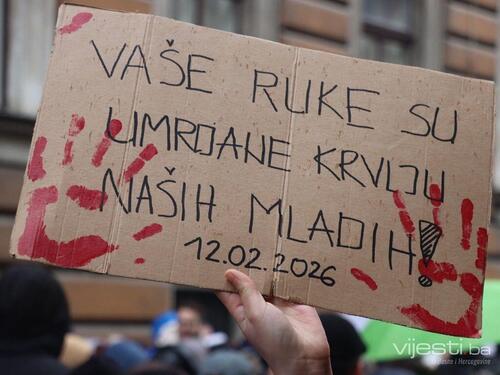 VAŠE RUKE SU
UMRDANE KRVLJU
NAŠIH MLADIH!
12.02.2026
vijesti.ba
Bosne i Hercegovine